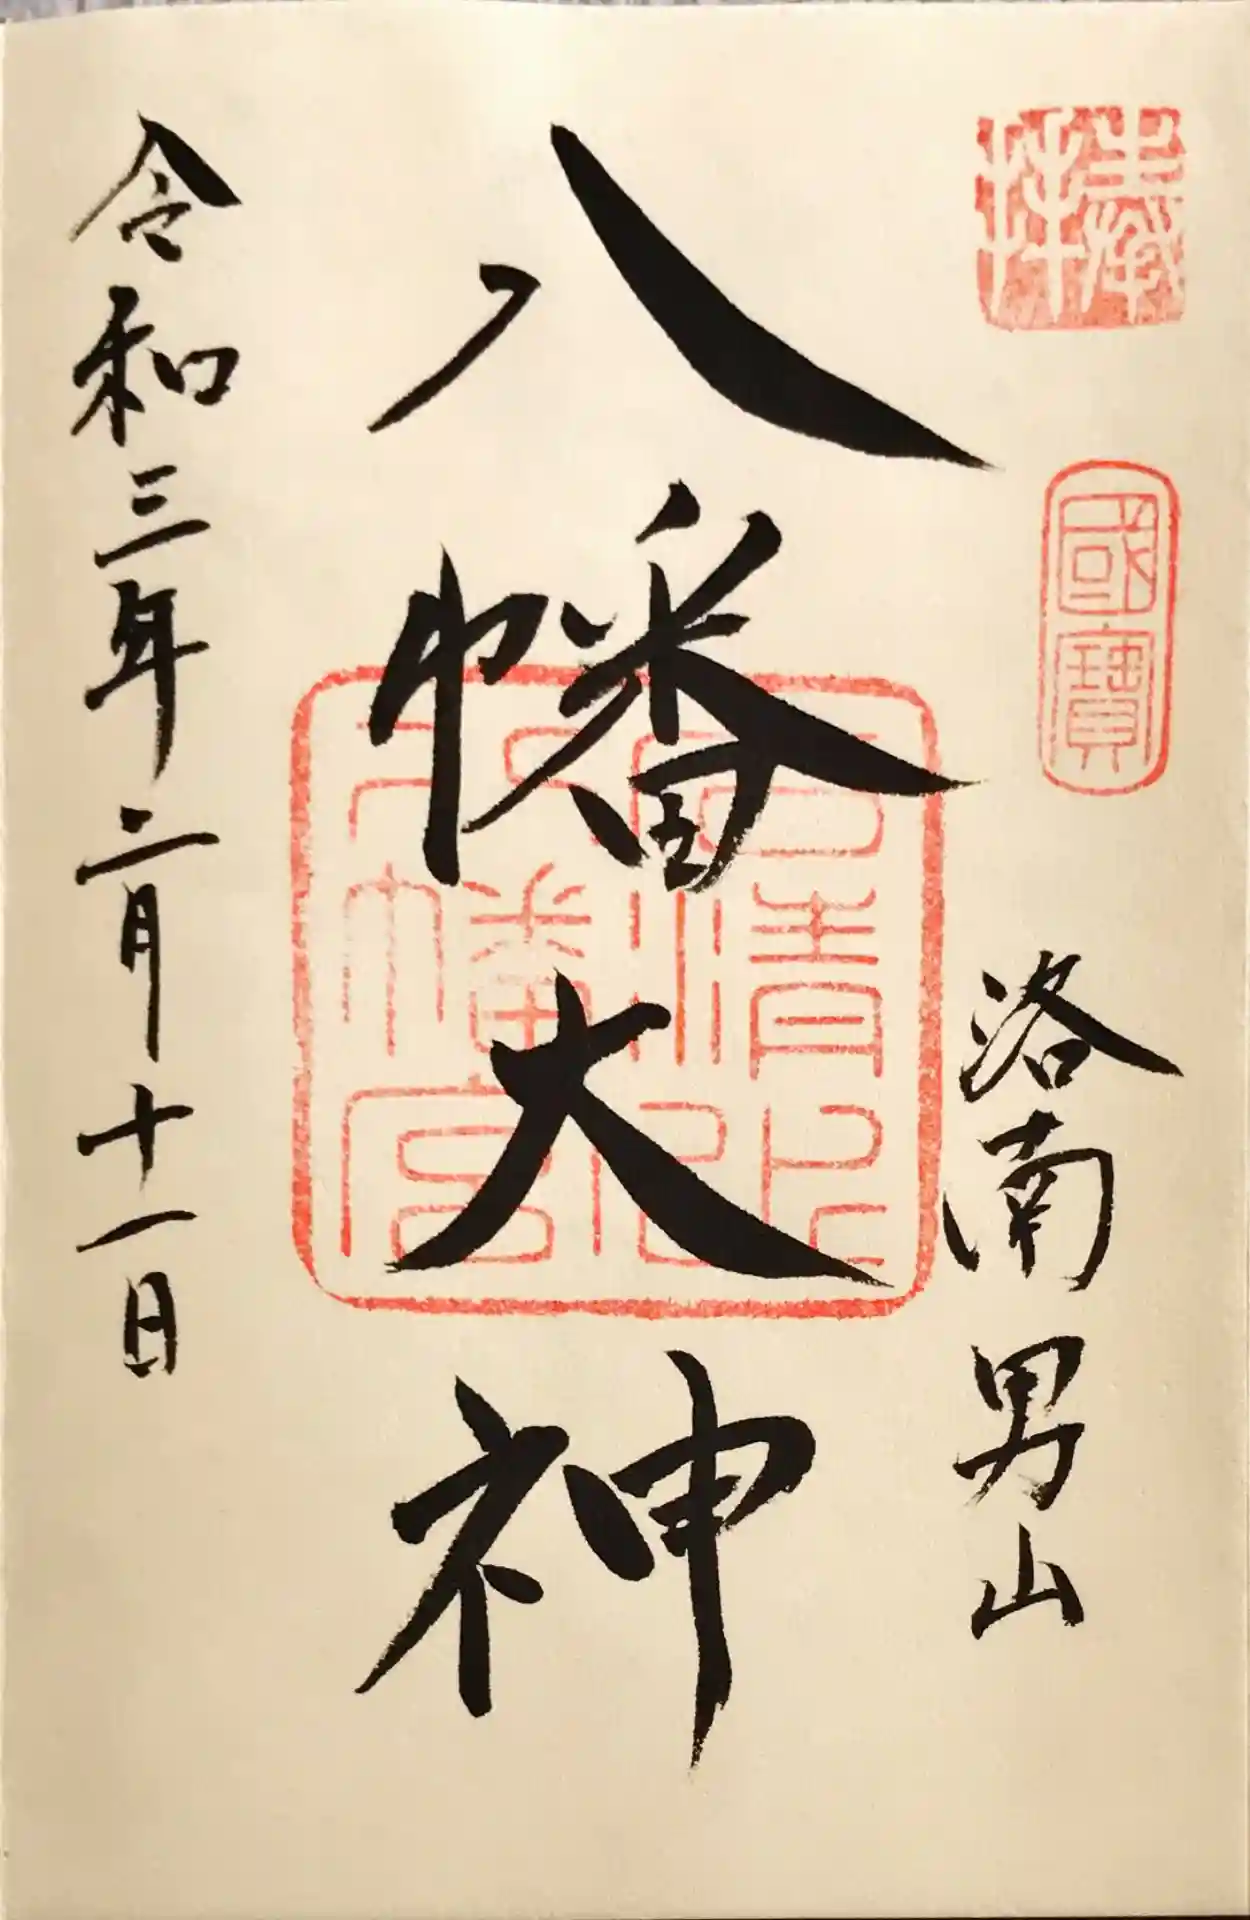 奉拝
國寶
洛南男山
八幡大神
石清水八幡宮
令和三年二月十一日